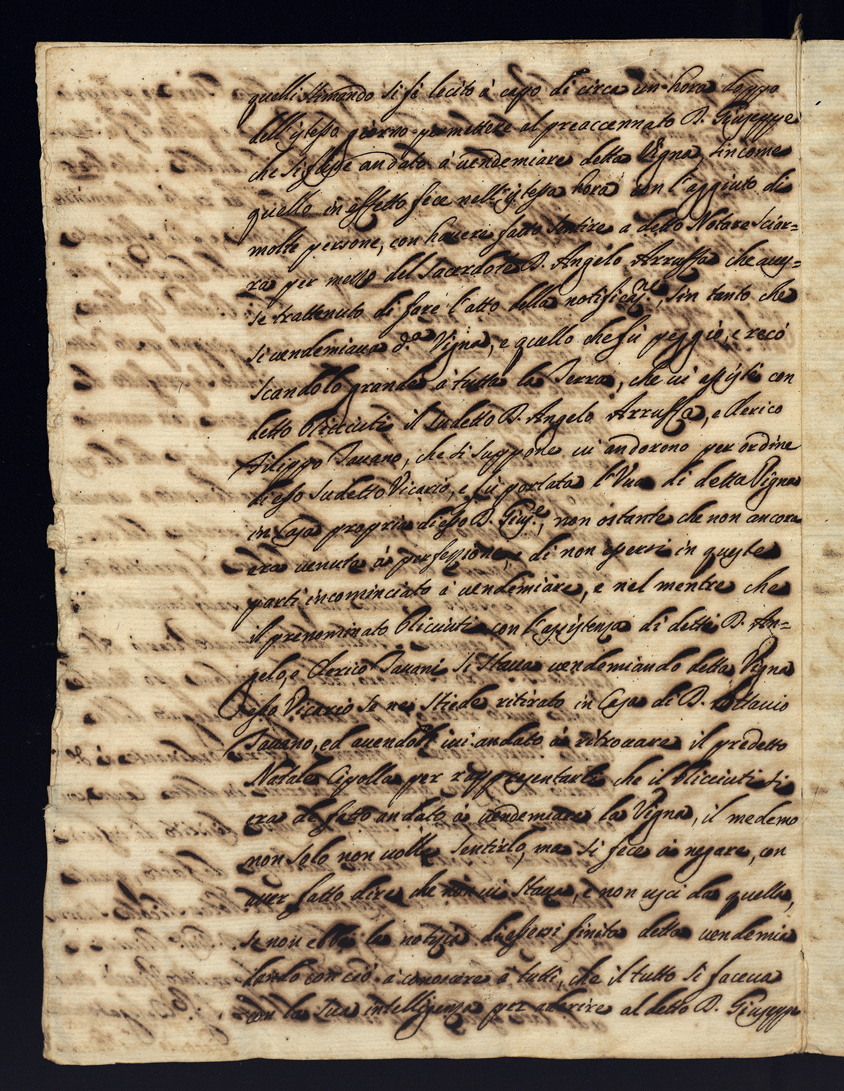 quelli stimando si fè lecito à capo di circa un hora doppo
dell'istesso giorno permettere al preaccennato D. Giuseppe
che si fosse andato à vendemiare detta Vigna, sincome
quello in effetto fece nell'istessa hora con l'aggiuto di
molte persone, con haveri fatto sentire a detto Notare Sciar=
ra per mezzo del Sacerdote D. Angelo Arruffa che aves=
se trattenuto di fare l'atto della notificaz.ne, sin tanto che
si vendemiava d.a Vigna, e quello che fù peggio, e recò
scandolo grande à tutta la Terra, che vi assistì con
detto Oliciuti il sudetto D. Angelo Arruffa, e Clerico
Filippo Pavano, che si suppone vi andorono per ordine
di esso sudetto Vicario, e fù portata l'Uva di detta Vigna
in Casa propria di esso D. Gius.e, non ostante che non ancora
era venuta à perfessione, e di non essersi in queste
parti incominciato à vendemiare, e nel mentre che
il prenominato Oliciuti con l'assistenza di detti D. An=
gelo e Clerico Pavani si stava vendemiando detta Vigna
esso Vicario se ne stiede ritirato in Casa di D. Ottavio
Pavano, ed avendosi ivi andato à ritrovare il predetto
Natale Cipolla per rappresentarli che il Oliciuti si
era al fatto andato à vendemiare la Vigna, il medemo
non solo non volle sentirlo, ma si fece à negare, con
aver fatto dire che non vi stava, e non uscì da quella,
se non ebbe la notizia di essersi finita detta vendemia
dando con ciò à conoscere à tutti, che il tutto si faceva
con la sua intelligenza per aderire al detto D. Giuseppe